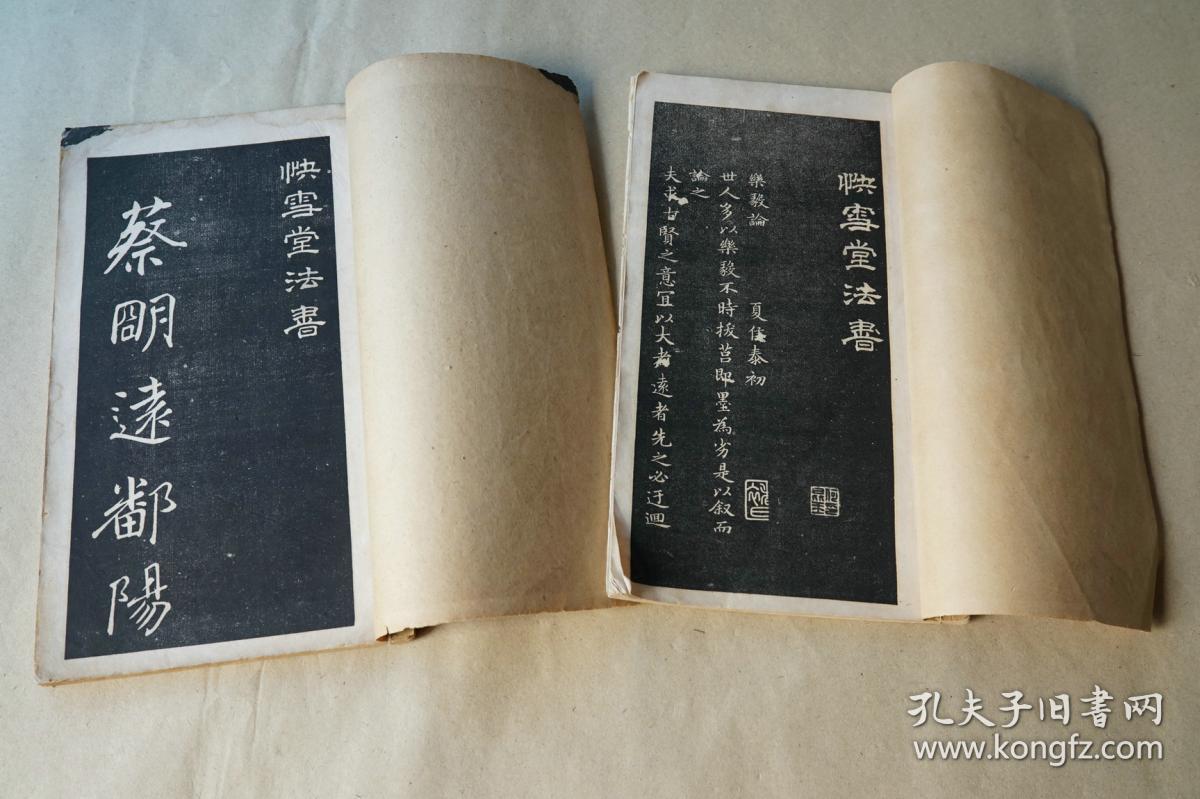 快雪堂法書
蔡明遠鄱陽
快雪堂法書
樂毅論 夏侯泰初
世人多以樂毅不時拔莒即墨為劣是以叙而
論之
夫求古賢之意宜以大者遠者先之必迂迴
孔夫子旧书网
www.kongfz.com